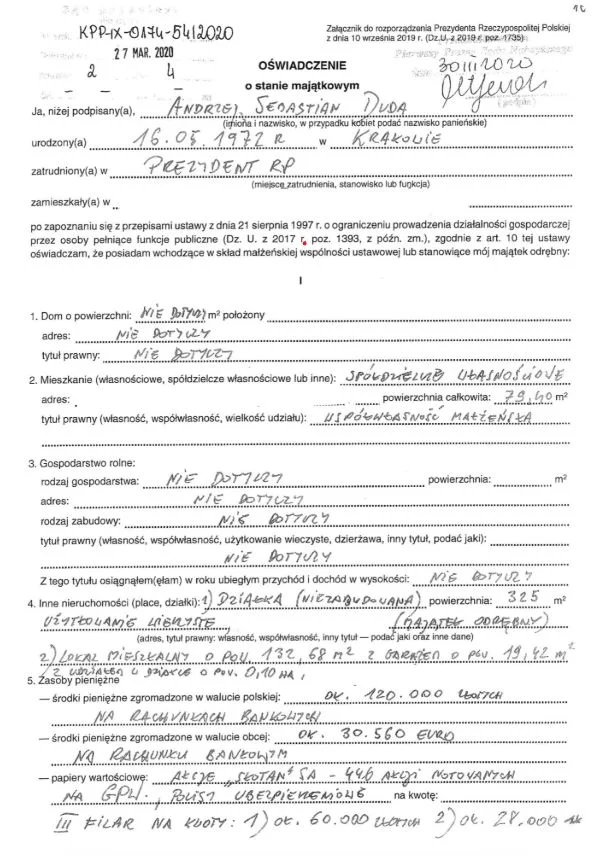 12
KPP-IX-0174-54/2020
Załącznik do rozporządzenia Prezydenta Rzeczypospolitej Polskiej
z dnia 10 września 2019 r. (Dz.U. z 2019 r. poz. 1735)
27 MAR. 2020
2 4
30 III 2020
OŚWIADCZENIE
o stanie majątkowym
Ja, niżej podpisany(a), ANDRZEJ SEBASTIAN DUDA
(imiona i nazwisko, w przypadku kobiet podać nazwisko panieńskie)
urodzony(a) 16.05.1972 R w KRAKOWIE
zatrudniony(a) w PREZYDENT RP
(miejsce zatrudnienia, stanowisko lub funkcja)
zamieszkały(a) w
po zapoznaniu się z przepisami ustawy z dnia 21 sierpnia 1997 r. o ograniczeniu prowadzenia działalności gospodarczej
przez osoby pełniące funkcje publiczne (Dz. U. z 2017 r. poz. 1393, z późn. zm.), zgodnie z art. 10 tej ustawy
oświadczam, że posiadam wchodzące w skład małżeńskiej wspólności ustawowej lub stanowiące mój majątek odrębny:
I
1. Dom o powierzchni: NIE DOTYCZY m² położony
adres: NIE DOTYCZY
tytuł prawny: NIE DOTYCZY
2. Mieszkanie (własnościowe, spółdzielcze własnościowe lub inne): SPÓŁDZIELCZE WŁASNOŚCIOWE
adres: powierzchnia całkowita: 79,40 m²
tytuł prawny (własność, współwłasność, wielkość udziału): WSPÓŁWŁASNOŚĆ MAŁŻEŃSKA
3. Gospodarstwo rolne:
rodzaj gospodarstwa: NIE DOTYCZY powierzchnia: m²
adres: NIE DOTYCZY
rodzaj zabudowy: NIE DOTYCZY
tytuł prawny (własność, współwłasność, użytkowanie wieczyste, dzierżawa, inny tytuł, podać jaki):
NIE DOTYCZY
Z tego tytułu osiągnąłem(ęłam) w roku ubiegłym przychód i dochód w wysokości: NIE DOTYCZY
4. Inne nieruchomości (place, działki): 1) DZIAŁKA (NIEZABUDOWANA) powierzchnia: 325 m²
UŻYTKOWANIE WIECZYSTE (MAJĄTEK ODRĘBNY)
(adres, tytuł prawny: własność, współwłasność, inny tytuł — podać jaki oraz inne dane)
2) LOKAL MIESZKALNY O POW. 132,68 m² Z GARAŻEM O POW. 19,42 m²
Z UDZIAŁEM W DZIAŁCE O POW. 0,10 HA,
5. Zasoby pieniężne
— środki pieniężne zgromadzone w walucie polskiej: OK. 120.000 ZŁOTYCH
NA RACHUNKACH BANKOWYCH
— środki pieniężne zgromadzone w walucie obcej: OK. 30.560 EURO
NA RACHUNKU BANKOWYM
— papiery wartościowe: AKCJE „SKOTAN" SA - 446 AKCJI NOTOWANYCH
NA GPW., POLISY UBEZPIECZENIOWE na kwotę:
III FILAR NA KWOTY: 1) OK. 60.000 ZŁOTYCH 2) OK. 28.000